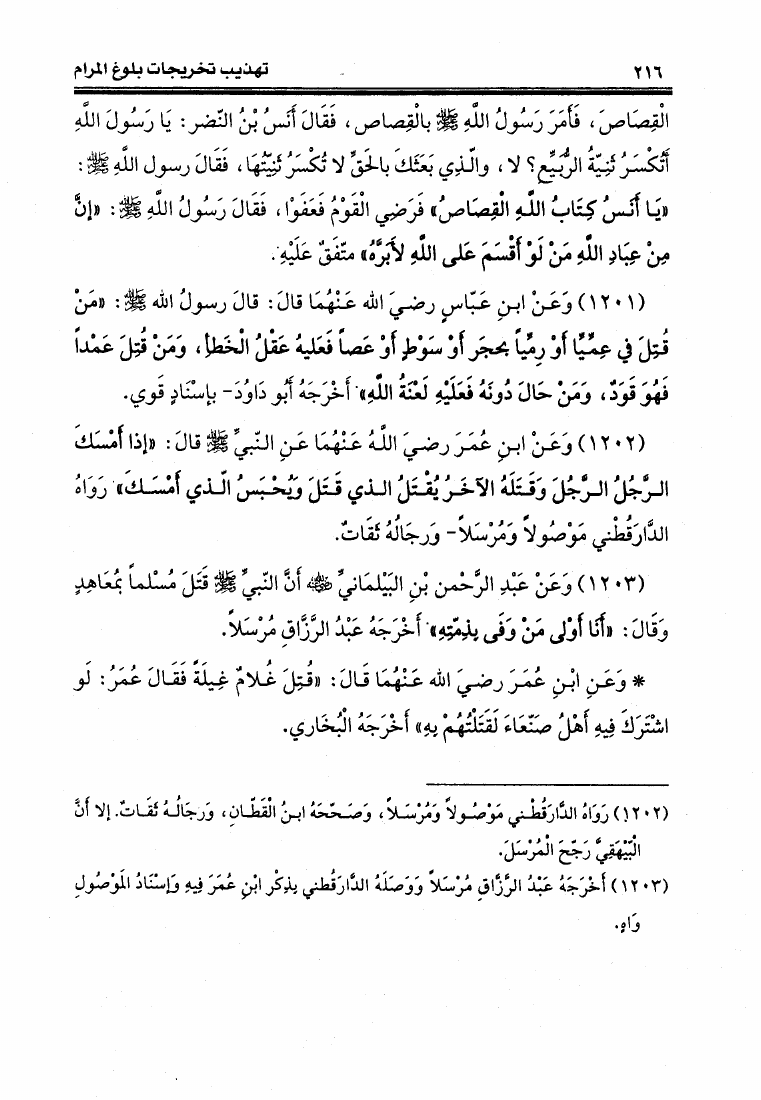 ٢١٦ تهذيب تخريجات بلوغ المرام
الْقِصَاصَ، فَأَمَرَ رَسُولُ اللَّهِ ﷺ بالْقِصاصِ، فَقَالَ أَنَسُ بْنُ النّضر: يَا رَسُولَ اللَّهِ
أَتُكْسَرُ ثَنِيّةُ الرُّبَيِّعِ؟ لا، والّذِي بَعَثَكَ بالحَقِّ لا تُكْسَرُ ثَنِيّتُهَا، فَقَالَ رسول اللَّهِ ﷺ:
«يَا أَنَسُ كِتَابُ اللَّهِ الْقِصَاصُ» فَرَضِي الْقَوْمُ فَعَفَوْا، فَقَالَ رَسُولُ اللَّهِ ﷺ: «إنَّ
مِنْ عِبَادِ اللَّهِ مَنْ لَوْ أَقْسَمَ عَلى اللَّهِ لأَبَرَّهُ» متّفَقٌ عَلَيْهِ.
(١٢٠١) وَعَنْ ابنِ عَبّاسٍ رضيَ الله عَنْهُمَا قالَ: قالَ رسولُ الله ﷺ: «مَنْ
قُتِلَ في عِمِّيّاً أَوْ رِمِّياً بحجَرٍ أَوْ سَوْطٍ أَوْ عَصاً فَعَليهُ عَقْلُ الْخَطأِ، وَمَنْ قُتِلَ عَمْداً
فَهُوَ قَوَدٌ، وَمَنْ حَالَ دُونَهُ فَعَلَيْهِ لَعْنَةُ اللَّهِ» أَخْرَجَهُ أَبُو دَاوُدَ- بإسْنَادٍ قَوي.
(١٢٠٢) وَعَنْ ابنِ عُمَرَ رضيَ اللَّهُ عَنْهُمَا عَنِ النّبيِّ ﷺ قالَ: «إذا أَمْسَكَ
الرَّجُلُ الرَّجُلَ وَقَتَلَهُ الآخَرُ يُقْتَلُ الذي قَتَلَ وَيُحْبَسُ الّذي أَمْسَكَ» رَوَاهُ
الدَّارَقُطْني مَوْصُولاً وَمُرْسَلاً- وَرجَالُهُ ثقَاتٌ.
(١٢٠٣) وَعَنْ عَبْدِ الرَّحْمنِ بْنِ البَيْلمَانيِّ ﷺ أَنَّ النّبيِّ ﷺ قَتَلَ مُسْلماً بمُعَاهِدٍ
وَقَالَ: «أَنَا أَوْلى مَنْ وَفَى بِذِمّتِهِ» أَخْرَجَهُ عَبْدُ الرَّزَّاقِ مُرْسَلاً.
* وَعَنِ ابْنِ عُمَرَ رضيَ الله عَنْهُمَا قَالَ: «قُتِلَ غُلامٌ غِيلَةً فَقَالَ عُمَرُ: لَو
اشْتَرَكَ فِيهِ أَهْلُ صَنْعَاءَ لَقَتَلْتُهُمْ بِهِ» أَخْرَجَهُ الْبُخَاري.
(١٢٠٢) رَوَاهُ الدَّارَقُطْني مَوْصُولاً وَمُرْسَلاً، وَصَحّحَهُ ابنُ الْقَطّانِ، وَرجَالُهُ ثقَاتٌ. إلا أَنَّ
الْبَيْهَقِيَّ رَجّحَ الْمُرْسَلَ.
(١٢٠٣) أَخْرَجَهُ عَبْدُ الرَّزَّاقِ مُرْسَلاً وَوَصَلَهُ الدَّارَقُطني بذِكْر ابْنِ عُمَرَ فِيهِ وَإسْنَادُ الْمَوْصُولِ
وَاهٍ.